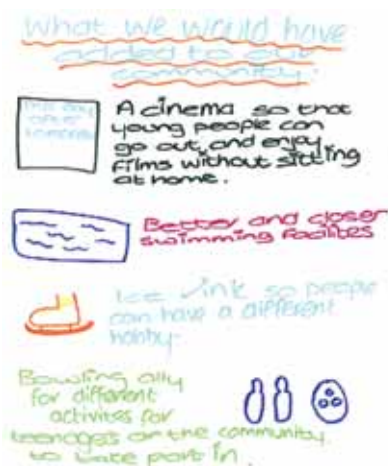 What we would have
added to our
community.
The day
after
tomorrow
A cinema so that
young people can
go out, and enjoy
films without sitting
at home.
Better and closer
swimming facilites
Ice rink so people
can have a different
hobby.
Bowling ally
for different
activites for
teenages or the community
to take part in.